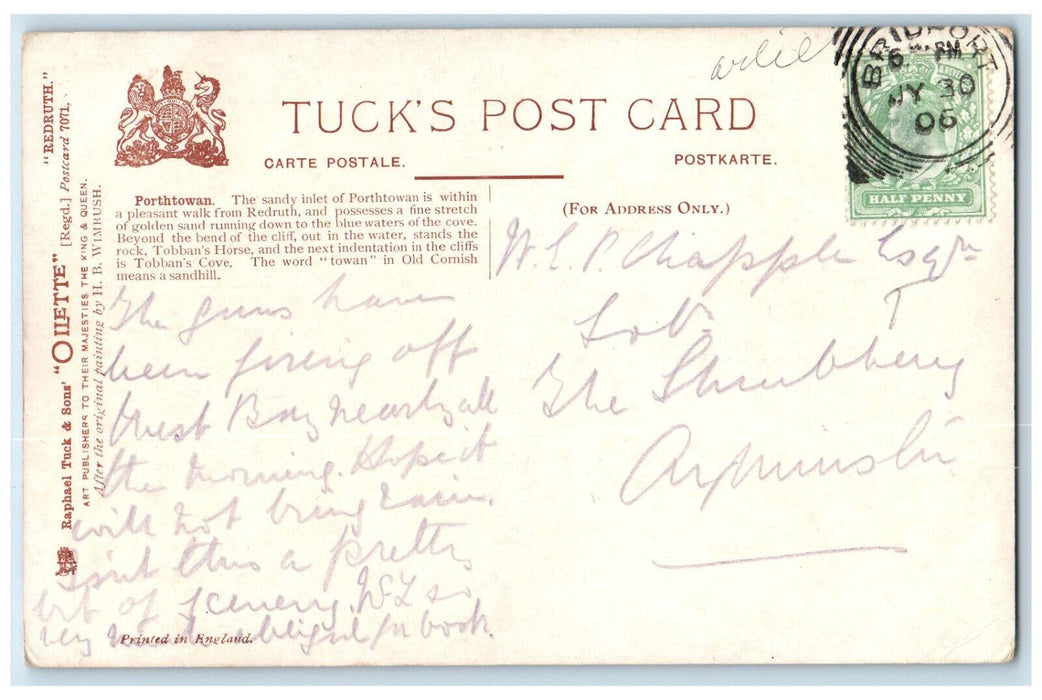 TUCK'S POST CARD
CARTE POSTALE.
POSTKARTE.
BRIDPORT
6 PM
JY 30
06
HALF PENNY
"REDRUTH."
[Regd.] Postcard 7071.
Raphael Tuck & Sons' "OILETTE"
ART PUBLISHERS TO THEIR MAJESTIES THE KING & QUEEN.
After the original painting by H. B. WIMBUSH.
Porthtowan. The sandy inlet of Porthtowan is within
a pleasant walk from Redruth, and possesses a fine stretch
of golden sand running down to the blue waters of the cove.
Beyond the bend of the cliff, out in the water, stands the
rock, Tobban's Horse, and the next indentation in the cliffs
is Tobban's Cove. The word "towan" in Old Cornish
means a sandhill.
The guns have
been firing off
West Bay nearly all
the morning. Hope it
will not bring rain.
isn't this a pretty
bit of scenery.
very much obliged for book.
Printed in England.
(FOR ADDRESS ONLY.)
Chapple Esqre
The Shrubbery
Axminster